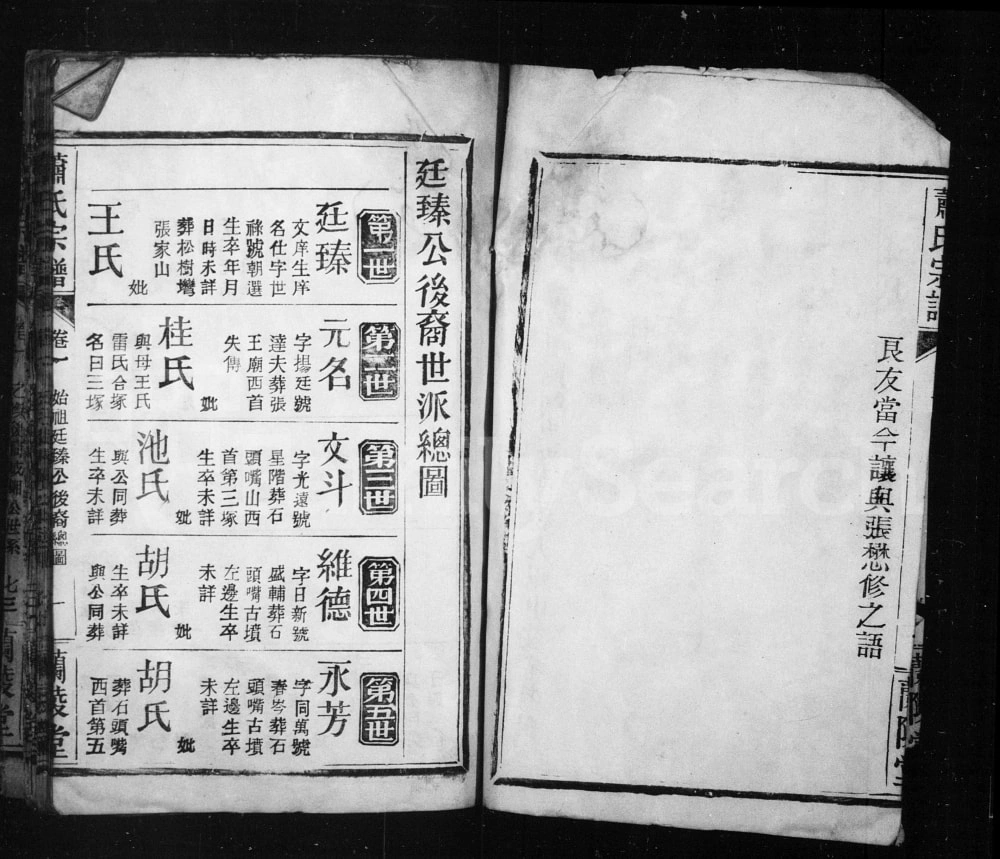 蕭氏宗譜
良友當今讓與張懋修之語
蘭陵堂
廷臻公後裔世派總圖
第一世
廷臻
文庠生庠
名仕字世
祿號朝選
生卒年月
日時未詳
葬松樹灣
張家山
妣
王氏
第二世
元名
字揚廷號
達夫葬張
王廟西首
失傳
妣
桂氏
與母王氏
雷氏合塚
名曰三塚
第三世
文斗
字光遠號
星階葬石
頭嘴山西
首第三塚
生卒未詳
妣
池氏
與公同葬
生卒未詳
第四世
維德
字日新號
盛輔葬石
頭嘴古墳
左邊生卒
未詳
妣
胡氏
生卒未詳
與公同葬
第五世
永芳
字同萬號
春岑葬石
頭嘴古墳
左邊生卒
未詳
妣
胡氏
葬石頭嘴
西首第五
蕭氏宗譜
卷一
始祖廷臻公後裔總圖
一
蘭陵堂